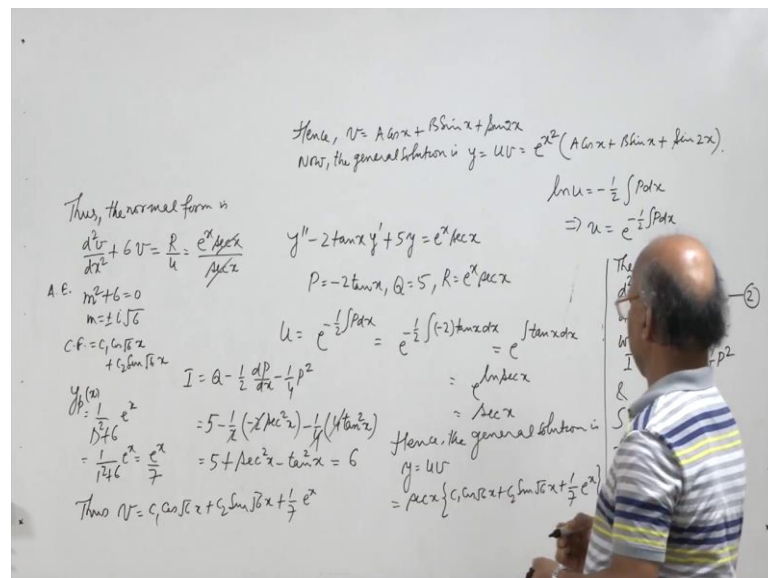 Hence, v = A cos x + B sin x + sin 2x
Now, the general solution is y = uv = e^{x^2} (A cos x + B sin x + sin 2x).
ln u = -1/2 ∫Pdx
⇒ u = e^{-1/2 ∫Pdx}
Thus, the normal form is
d²v/dx² + 6v = R/u = e^x sec x / sec x
A.E. m² + 6 = 0
m = ± i√6
C.F. = c₁ cos √6 x
+ c₂ sin √6 x
y_p(x)
= 1/(D²+6) e^x
= 1/(1²+6) e^x = e^x/7
Thus v = c₁ cos √6 x + c₂ sin √6 x + 1/7 e^x
y'' - 2 tan x y' + 5y = e^x sec x
P = -2 tan x, Q = 5, R = e^x sec x
u = e^{-1/2 ∫Pdx} = e^{-1/2 ∫(-2) tan x dx} = e^{∫tan x dx}
= e^{ln sec x}
= sec x
I = Q - 1/2 dP/dx - 1/4 P²
= 5 - 1/2 (-2 sec² x) - 1/4 (4 tan² x)
= 5 + sec² x - tan² x = 6
Hence, the general solution is
y = uv
= sec x {c₁ cos √6 x + c₂ sin √6 x + 1/7 e^x}
The
②
I
P²
&